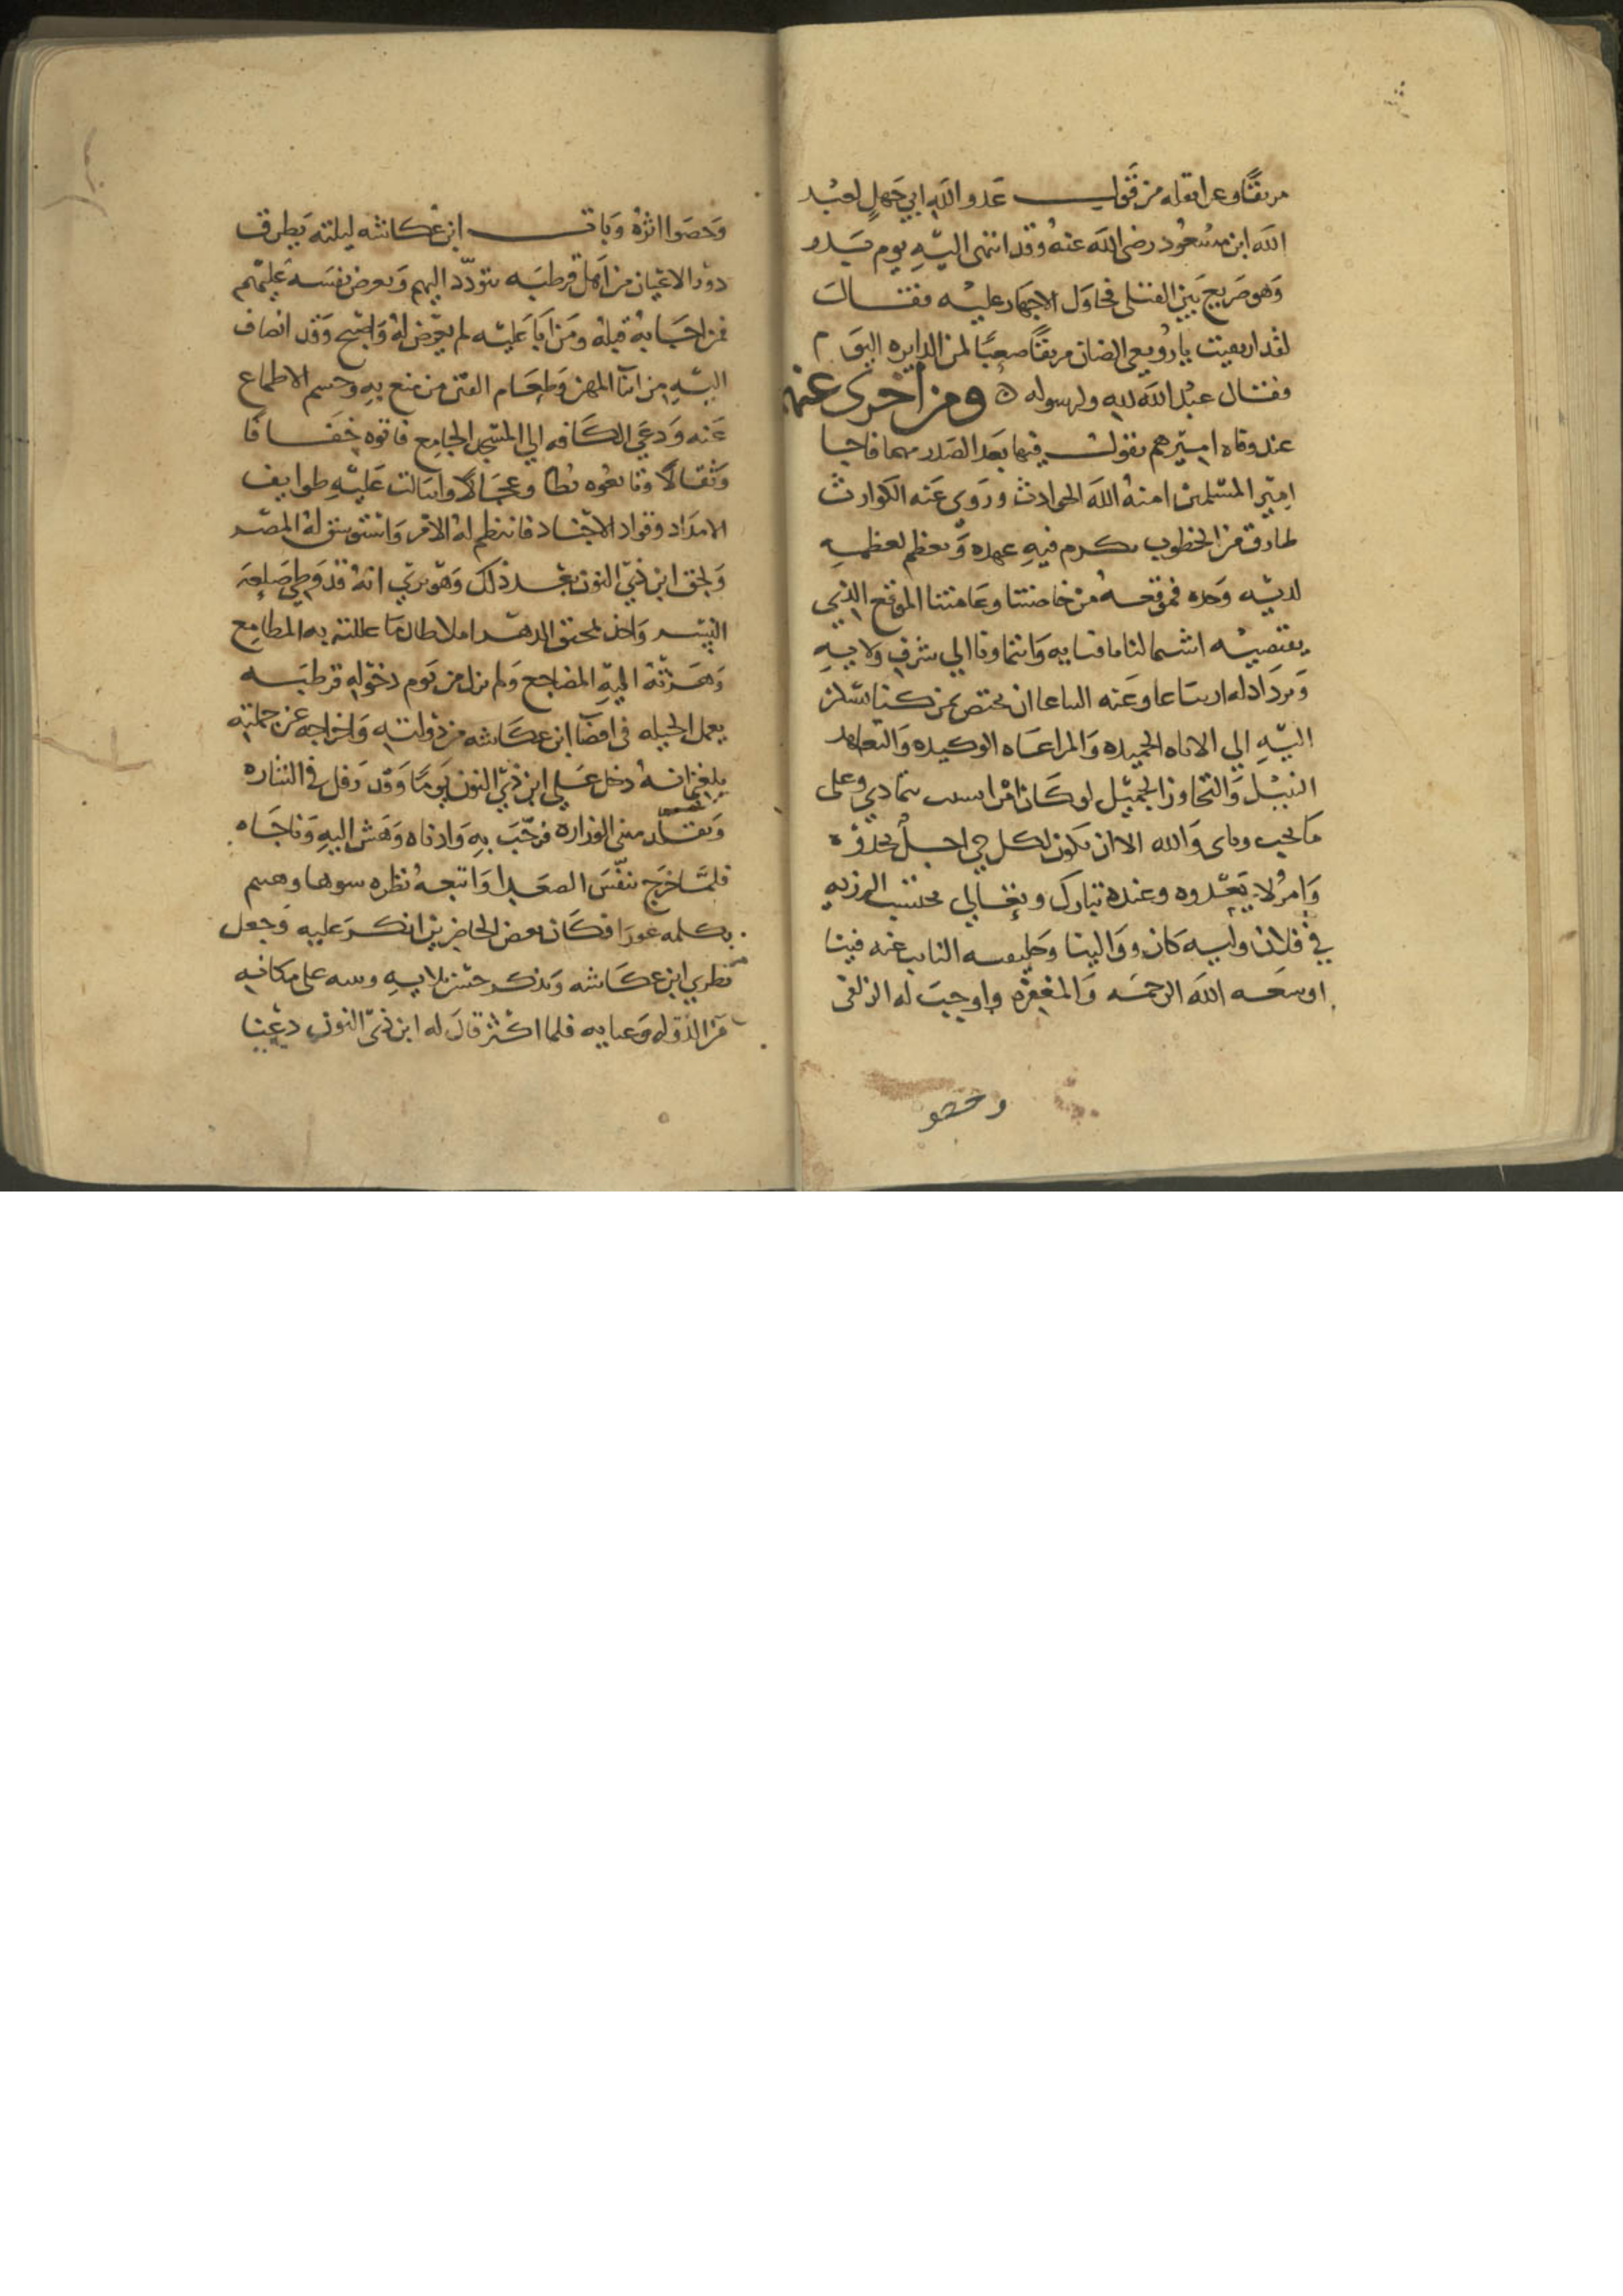 مرتقًا وعرا بقوله من قول عدو الله ابي جهل لعبد
الله ابن مسعود رضي الله عنه وقد انتهى اليه يوم بدر
وهو صريع بين القتلى فحاول الاجهاز عليه فقال
لقد ارتقيت يا رويعي الضان مرتقًا صعبًا لمن الدايره اليوم
فقال عبد الله لله ولرسوله ومن اخرى عنه
عند وفاه اميرهم يقول فيها بعد الصدر مهما فاجا
امير المسلمين امنه الله الحوادث وروى عنه الكوارث
طارق من الخطوب يكرم فيه عهده ويعظم لعظمه
لديه وحده فموقعه من خاصتنا وعامتنا الموقع الذي
يقتضيه اشتمالنا بافنايه وانتماونا الى شرف ولايه
ان يختص بمن كنا نسكن
اليه الى الاناه الحميده والمراعاه الوكيده والتعاهد
النبيل والتجاوز الجميل لو كان تمادي وعلى
ما يحب وياى والله الا ان يكون لكل حي اجل يحدوه
وامر لا يعدوه وعنده تبارك وتعالى نحتسب الرزيه
في فلان وليه كان ووالينا وخليفته النايب عنه فينا
اوسعه الله الرحمه والمغفره واوجب له الزلفى
وحصو
وحصوا اثره وبات ابن عكاشه ليلته يطرق
دور الاعيان من اهل قرطبه يتودد اليهم ويعرض نفسه عليهم
فمن اجابه قبله ومن ابا عليه لم يعرض له واصبح وقد انضاف
اليه من ابنا المهن وطعام الفتن من منع به وحسم الاطماع
عنه ودعي الكافه الي المسجد الجامع فاتوه خفافا
وثقالا وتابعوه بطا وعجالا وانثالت عليه طوايف
الامداد وقواد الاجناد فانتظم له الامر واستوسق له المصر
ولحق ابن ذي النون بعد ذلك وهو يري انه قد وطي صلعه
النسر واخذ بمخنق الدهر املا طال ما عللته به المطامع
وهزته اليه المضاجع ولم يزل من يوم دخوله قرطبه
يعمل الحيله في اقصا ابن عكاشه من دولته واخراجه عن جملته
بلغني انه دخل علي ابن ذي النون يوما وقد رفل في الشاره
وتقلد مثنى الوزاره فرحب به وادناه وهش اليه وناجاه
فلما خرج تنفس الصعدا واتبعه نظره سوها وهمهم
بكلمه عورا فكان بعض الحاضرين انكر عليه وجعل
يطري ابن عكاشه ويذكر حسن بلايه على مكانه
من الدوله وغنايه فلما اكثر قال له ابن ذي النون دعنا